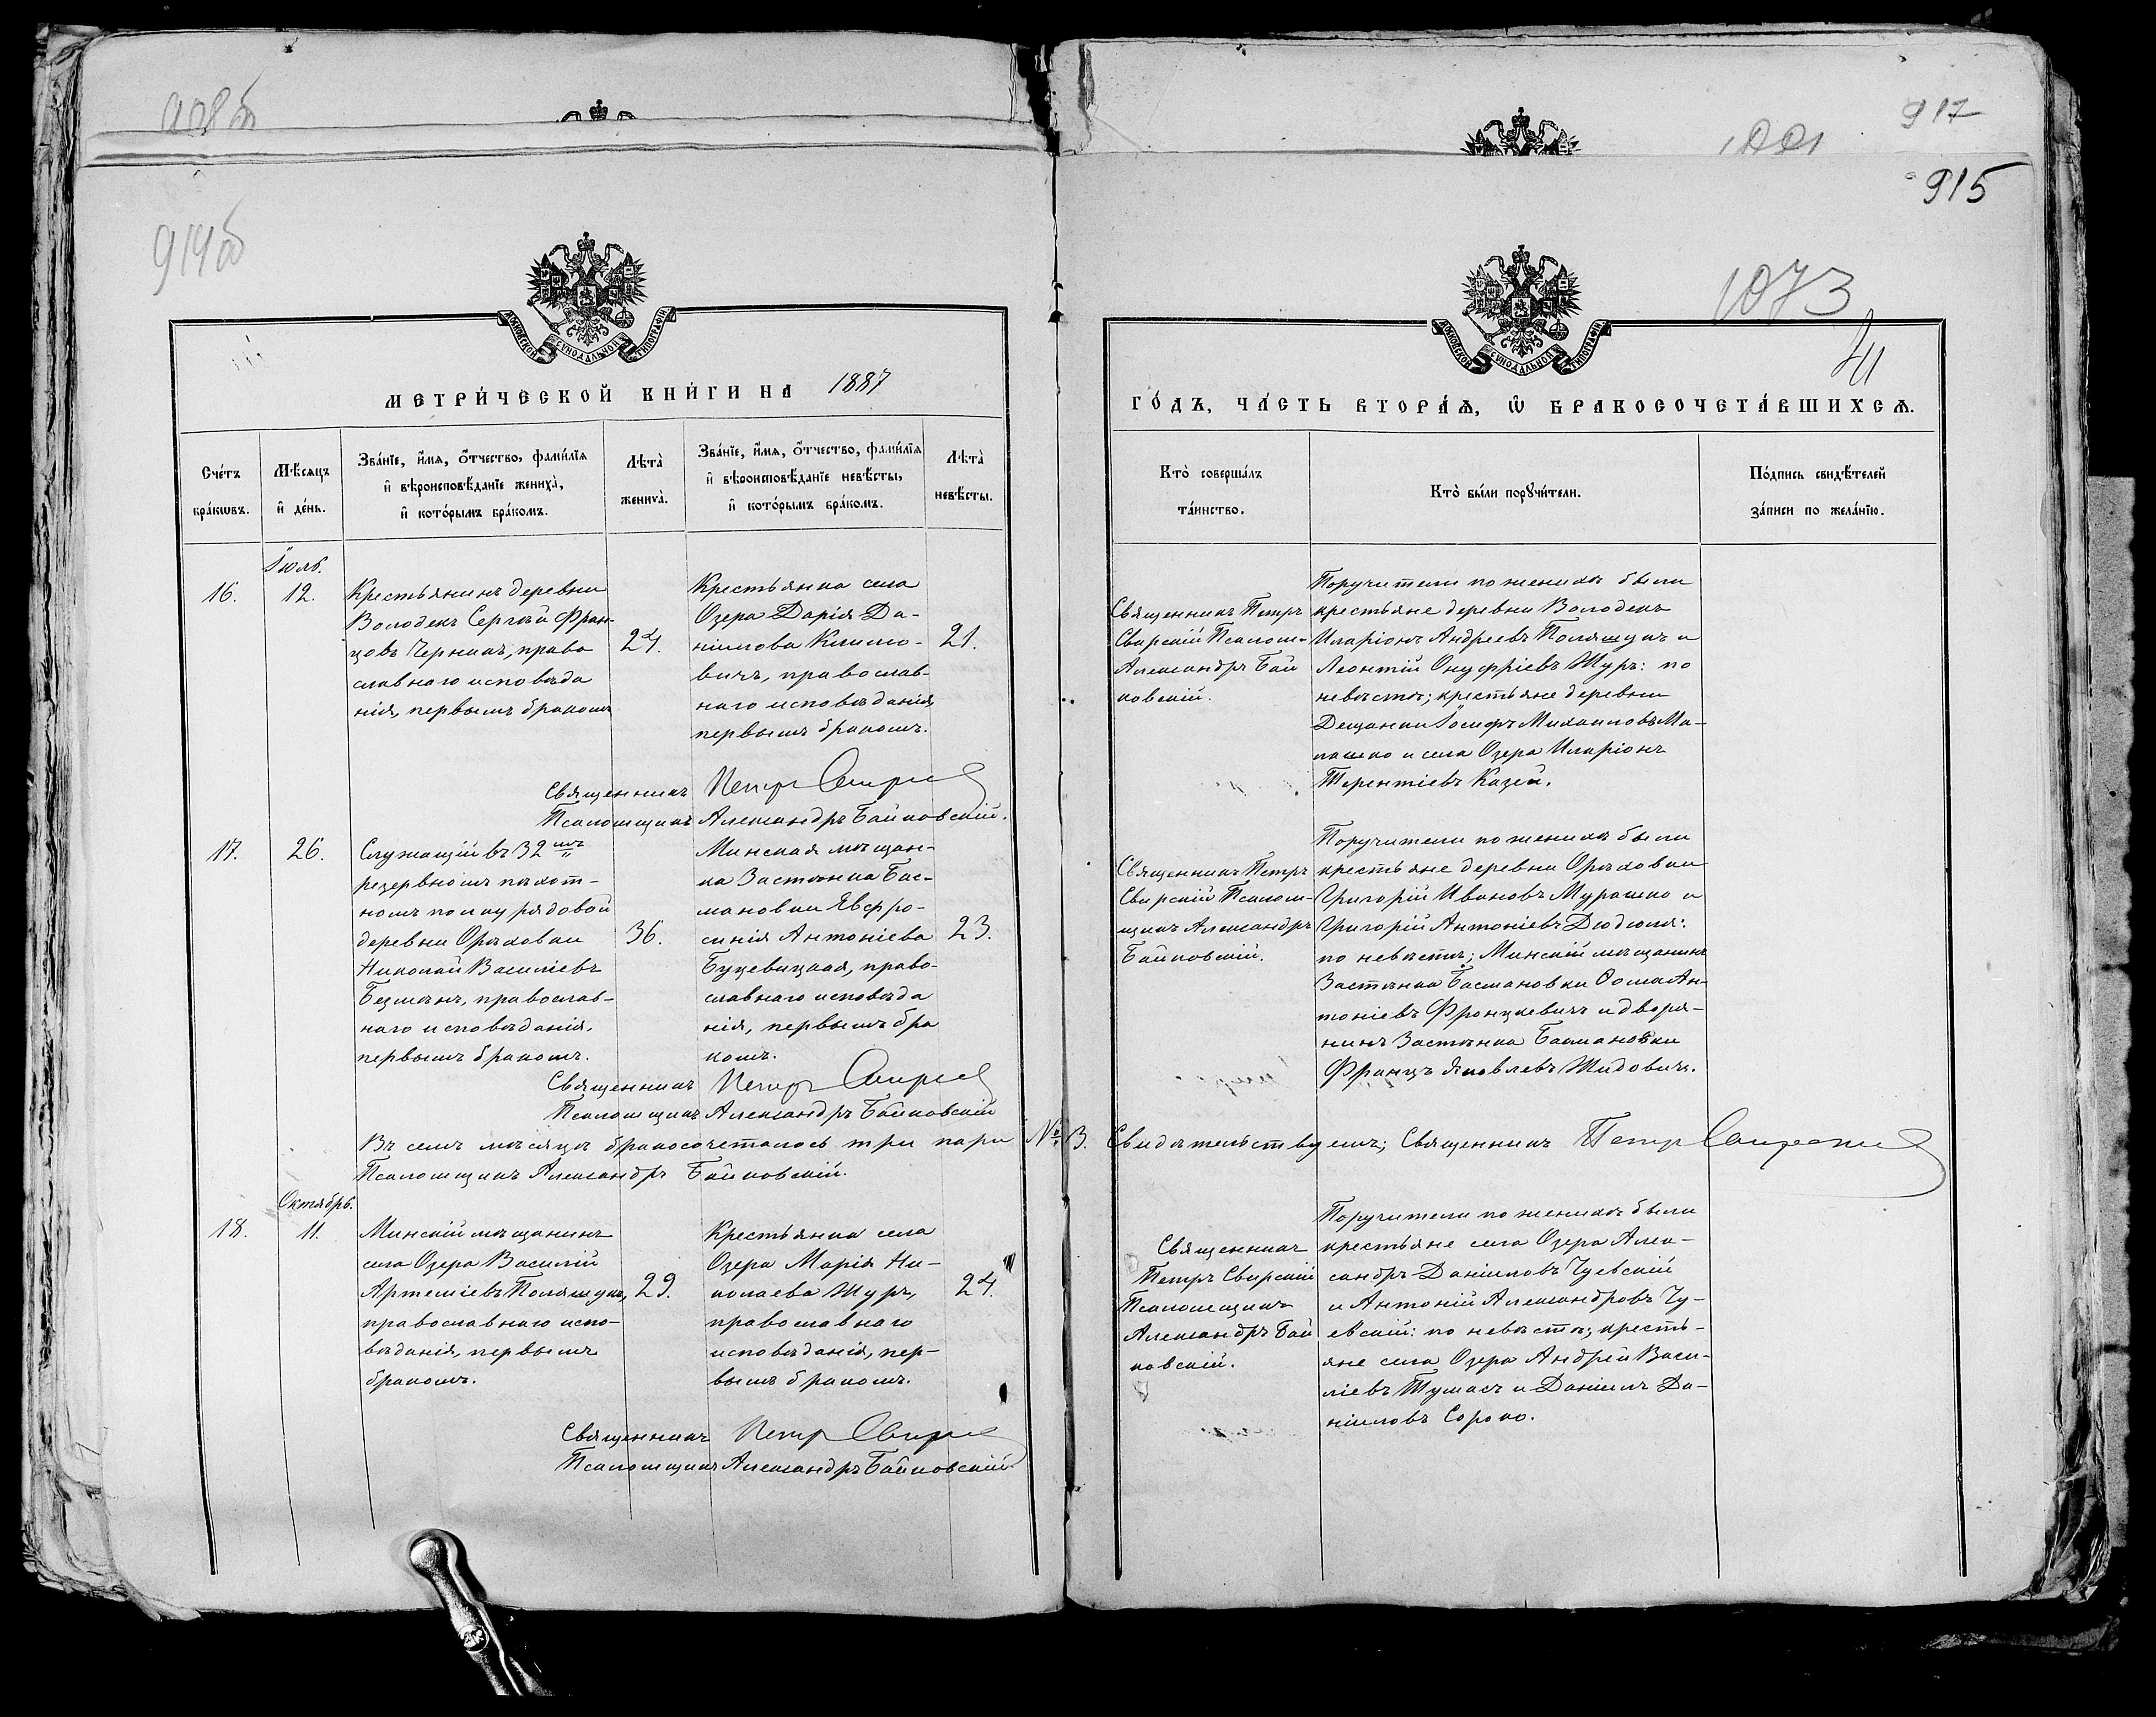 917
1001
915
914об
1073
МОСКОВСКОЙ СѴНОДАЛЬНОЙ ТИПОГРАФІИ
МОСКОВСКОЙ СѴНОДАЛЬНОЙ ТИПОГРАФІИ
МЕТРИ́ЧЕСКОЙ КНИ́ГИ НА 1887
ГО́ДЪ, ЧА́СТЬ ВТОРА́Я, Ѡ БРАКОСОЧЕТА́ВШИХСЯ.
Сче́тъ бра́ковъ.
Мѣ́сяцъ и де́нь.
Зва́нїе, и́мя, о́тчество, фами́лїя и вѣроисповѣ́данїе жениха̀, и кото́рымъ бра́комъ.
Лѣта̀ жениха̀.
Зва́нїе, и́мя, о́тчество, фами́лїя и вѣроисповѣ́данїе невѣ́сты, и кото́рымъ бра́комъ.
Лѣта̀ невѣ́сты.
Кто̀ соверша́лъ та́инство.
Кто̀ бы́ли порꙋчи́тели.
По́дпись свидѣ́телей за́писи по жела́нїю.
Іюль.
16.
12.
Крестьянинъ деревни
Володекъ Сергѣй Фран-
цовъ Черникъ, право
славнаго исповѣда
нія, первымъ бракомъ
24.
Крестьянка села
Озера Дарія Да-
ніилова Климо-
вичъ, православ-
наго исповѣданія,
первымъ бракомъ.
21.
Священникъ Петръ
Свирскій Псалом-
Александръ Бай
ковскій.
Поручители по женихѣ были
крестьяне деревни Володекъ
Иларіонъ Андреевъ Полящукъ и
Леонтій Онуфріевъ Журъ: по
невѣстѣ; крестьяне деревни
Дещанки Іосифъ Михаиловъ Ма-
кашко и села Озера Иларіонъ
Терентіевъ Казей.
Священникъ Петръ Свирскій
Псаломщикъ Александръ Байковскій.
17.
26.
Служащій въ 32мъ
резервномъ пѣхот-
номъ полку рядовой
деревни Орѣховки
Николай Василіевъ
Безмѣнъ, православ-
наго исповѣданія,
первымъ бракомъ.
36.
Минская мѣщан-
ка Застѣнка Бас-
мановки Евфро-
синія Антоніева
Буцевицкая, право-
славнаго исповѣда
нія, первымъ бра
комъ.
23.
Священникъ Петръ
Свирскій Псалом-
щикъ Александръ
Байковскій.
Поручители по женихѣ были
крестьяне деревни Орѣховки
Григорій Ивановъ Мурашко и
Григорій Антоніевъ Дюдюля:
по невѣстѣ; Минскій мѣщанинъ
Застѣнка Басмановки Ѳома Ан-
тоніевъ Францкевичъ и дворя-
нинъ Застѣнка Басмановки
Францъ Яковлевъ Жидовичъ.
Священникъ Петръ Свирскій
Псаломщикъ Александръ Байковскій
Въ семъ мѣсяцѣ бракосочеталось три пары № 3. Свидѣтельствуемъ; Священникъ Петръ Свирскій
Псаломщикъ Александръ Байковскій.
Октябрь.
18.
11.
Минскій мѣщанинъ
села Озера Василій
Артеміевъ Полящукъ,
православнаго испо-
вѣданія, первымъ
бракомъ.
29.
Крестьянка села
Озера Марія Ни-
колаева Журъ,
православнаго
исповѣданія, пер-
вымъ бракомъ.
24.
Священникъ
Петръ Свирскій
Псаломщикъ
Александръ Бай
ковскій.
Поручители по женихѣ были
крестьяне села Озера Алек-
сандръ Даніиловъ Чуевскій
и Антоній Александровъ Чу-
евскій: по невѣстѣ; кресть-
яне села Озера Андрей Васи-
ліевъ Тумасъ и Даніилъ Да-
ніиловъ Сороко.
Священникъ Петръ Свирскій
Псаломщикъ Александръ Байковскій